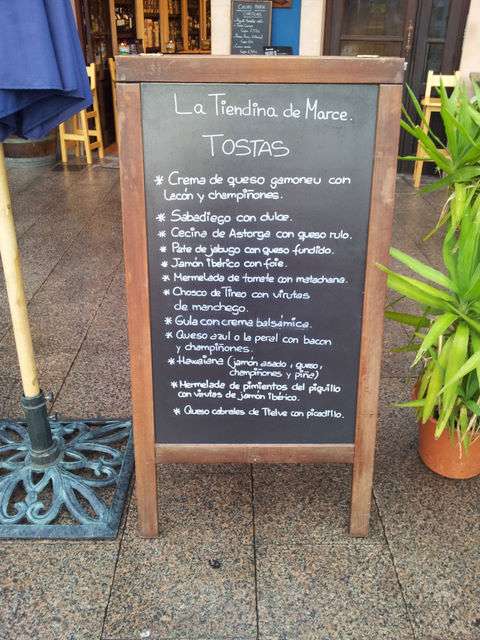 La Tiendina de Marce.
TOSTAS
* Crema de queso gamoneu con
Lacón y champiñones.
* Sabadiego con dulce.
* Cecina de Astorga con queso rulo.
* Pate de jabugo con queso fundido.
* Jamón ibérico con foie.
* Mermelada de tomate con matachana.
* Chosco de Tineo con virutas
de manchego.
* Gula con crema balsámica.
* Queso azul o la peral con bacon
y champiñones.
* Hawaiana (jamón asado, queso,
champiñones y piña)
* Mermelada de pimientos del piquillo
con virutas de jamón ibérico.
* Queso cabrales de Tielve con picadillo.